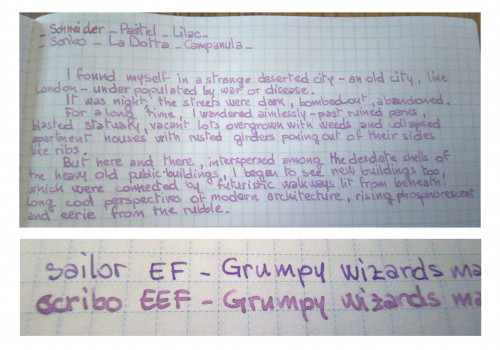 - Schneider - Pastel - Lilac -
- Scribo - La Dotta - Campanula -
I found myself in a strange deserted city - an old city, like
London - underpopulated by war or disease.
It was night; the streets were dark, bombed out, abandoned.
For a long time, I wandered aimlessly - past ruined parks,
blasted statuary, vacant lots overgrown with weeds and collapsed
apartment houses with rusted girders poking out of their sides
like ribs.
But here and there, interspersed among the desolate shells of
the heavy old public buildings, I began to see new buildings too,
which were connected by futuristic walkways lit from beneath.
Long cool perspectives of modern architecture, rising phosphorescent
and eerie from the rubble -
sailor EF - Grumpy wizards ma
scribo EEF - Grumpy wizards ma